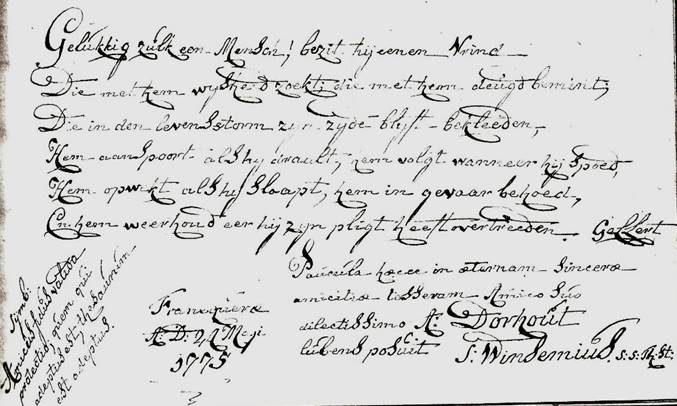 Gelukkig zulk een Mensch! bezit hij eenen Vrind
Die met hem wysheid zoekt; die met hem deugd bemint;
Die in den levensstorm zyn zyde blyft bekleeden,
Hem aanspoort als hy draalt, hem volgt wanneer hij spoed,
Hem opwekt als hij slaapt, hem in gevaar behoed,
En hem weerhoud eer hij zyn pligt heeft overtreeden. Gellert
Simb.
Amicus fidus valida
protectio, quem qui
adeptus est, thesaurum
est adeptus.
Franequerae
A: D: 24 Meji
1775
Paucula haecce in aeternam sincerae
amicitiae tesseram Amico suo
dilectissimo A: Dorhout
lubens posuit
S: Windemius. s: s: Th: St: